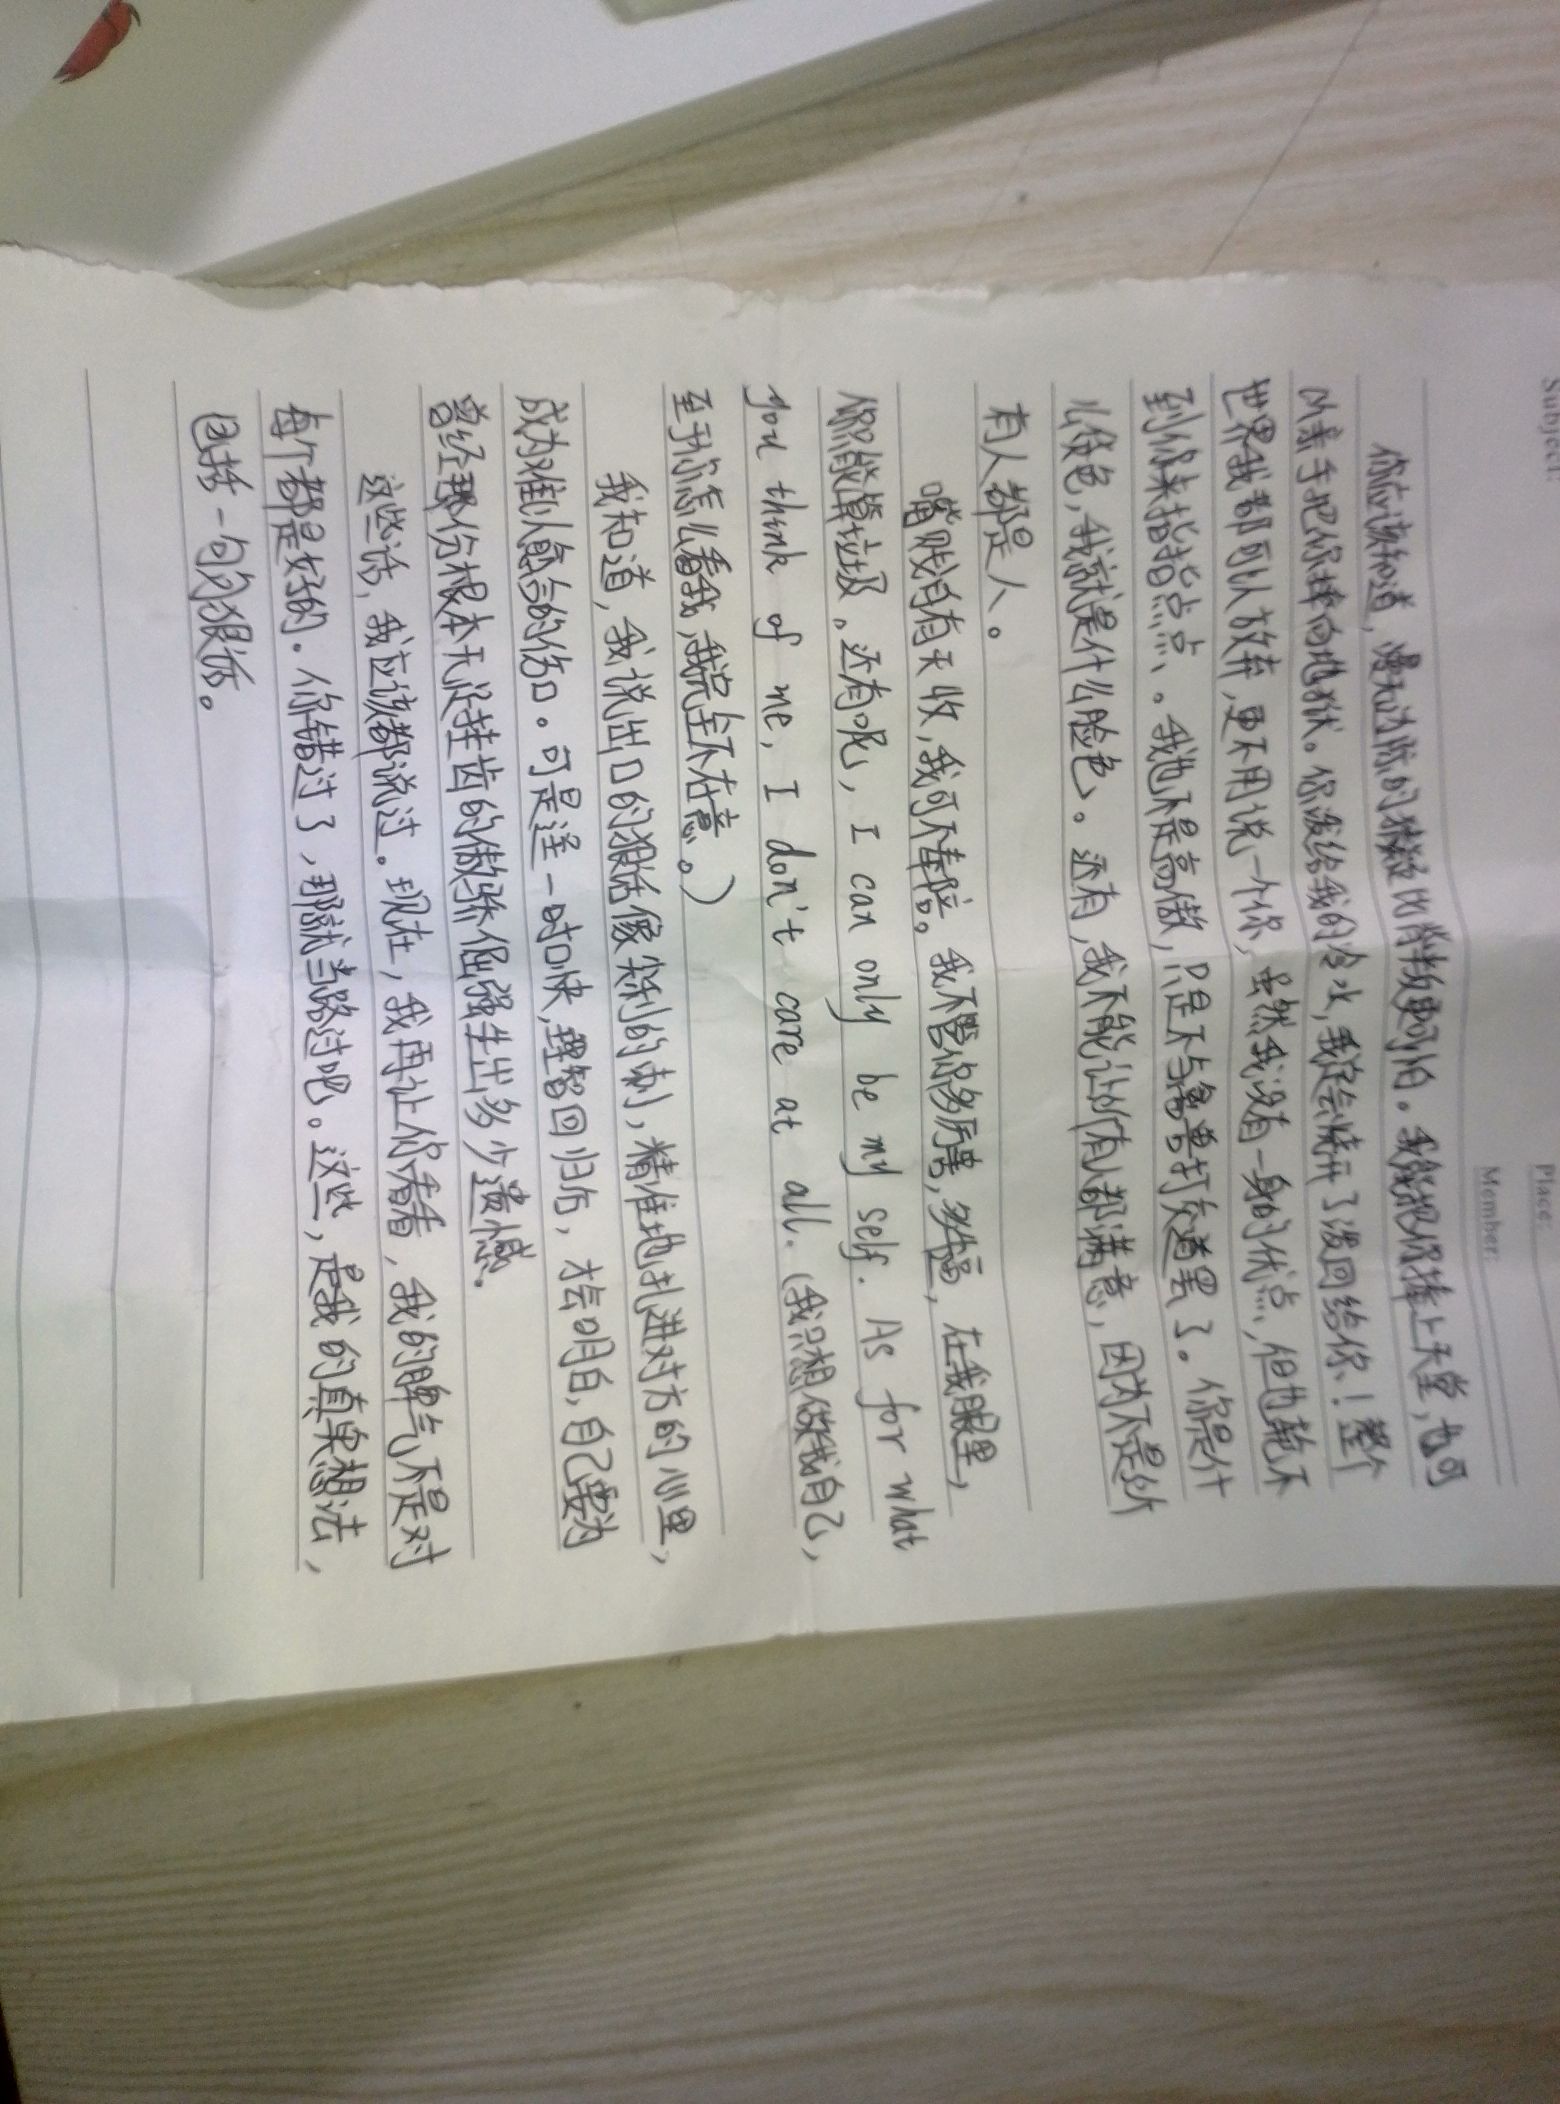 Subject:
Place:
Member:
你应该知道，漫无边际的猜疑比背叛更可怕。我能把你捧上天堂，也可
以亲手把你摔向地狱。你泼给我的冷水，我定会烧开了泼回给你！整个
世界我都可以放弃，更不用说一个你，虽然我没有一身的优点，但也轮不
到你来指指点点。我也不是高傲，只是不与禽兽打交道罢了。你是什
么货色，我就是什么脸色。还有，我不能让所有人都满意，因为不是所
有人都是人。
嘴贱自有天收，我可不奉陪。我不管你多厉害，多牛逼，在我眼里，
你只能算垃圾。还有呢，I can only be my self. As for what
you think of me, I don't care at all.（我只想做我自己，
至于你怎么看我，我完全不在意。）
我知道，我说出口的狠话像尖利的刺，精准地扎进对方的心里，
成为难以愈合的伤口。可是逞一时口快，理智回归后，才会明白，自己要为
曾经那份根本无足挂齿的傲骄倔强生出多少遗憾。
这些话，我应该都说过。现在，我再让你看看，我的脾气不是对
每个都是好的。你错过了，那就当路过吧。这些，是我的真実想法，
包括一句句狠话。